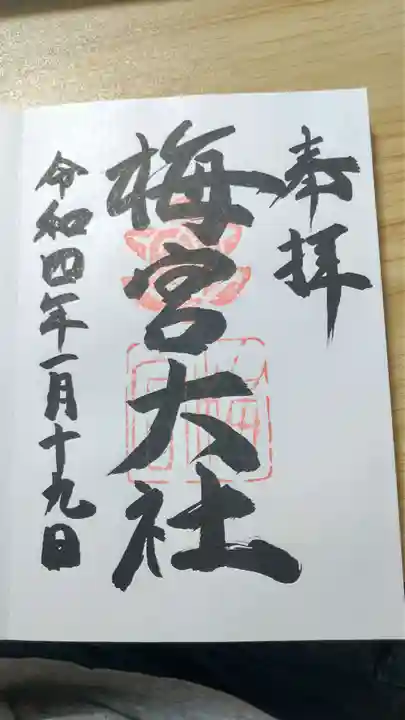 奉拝
梅宮大社
令和四年一月十九日